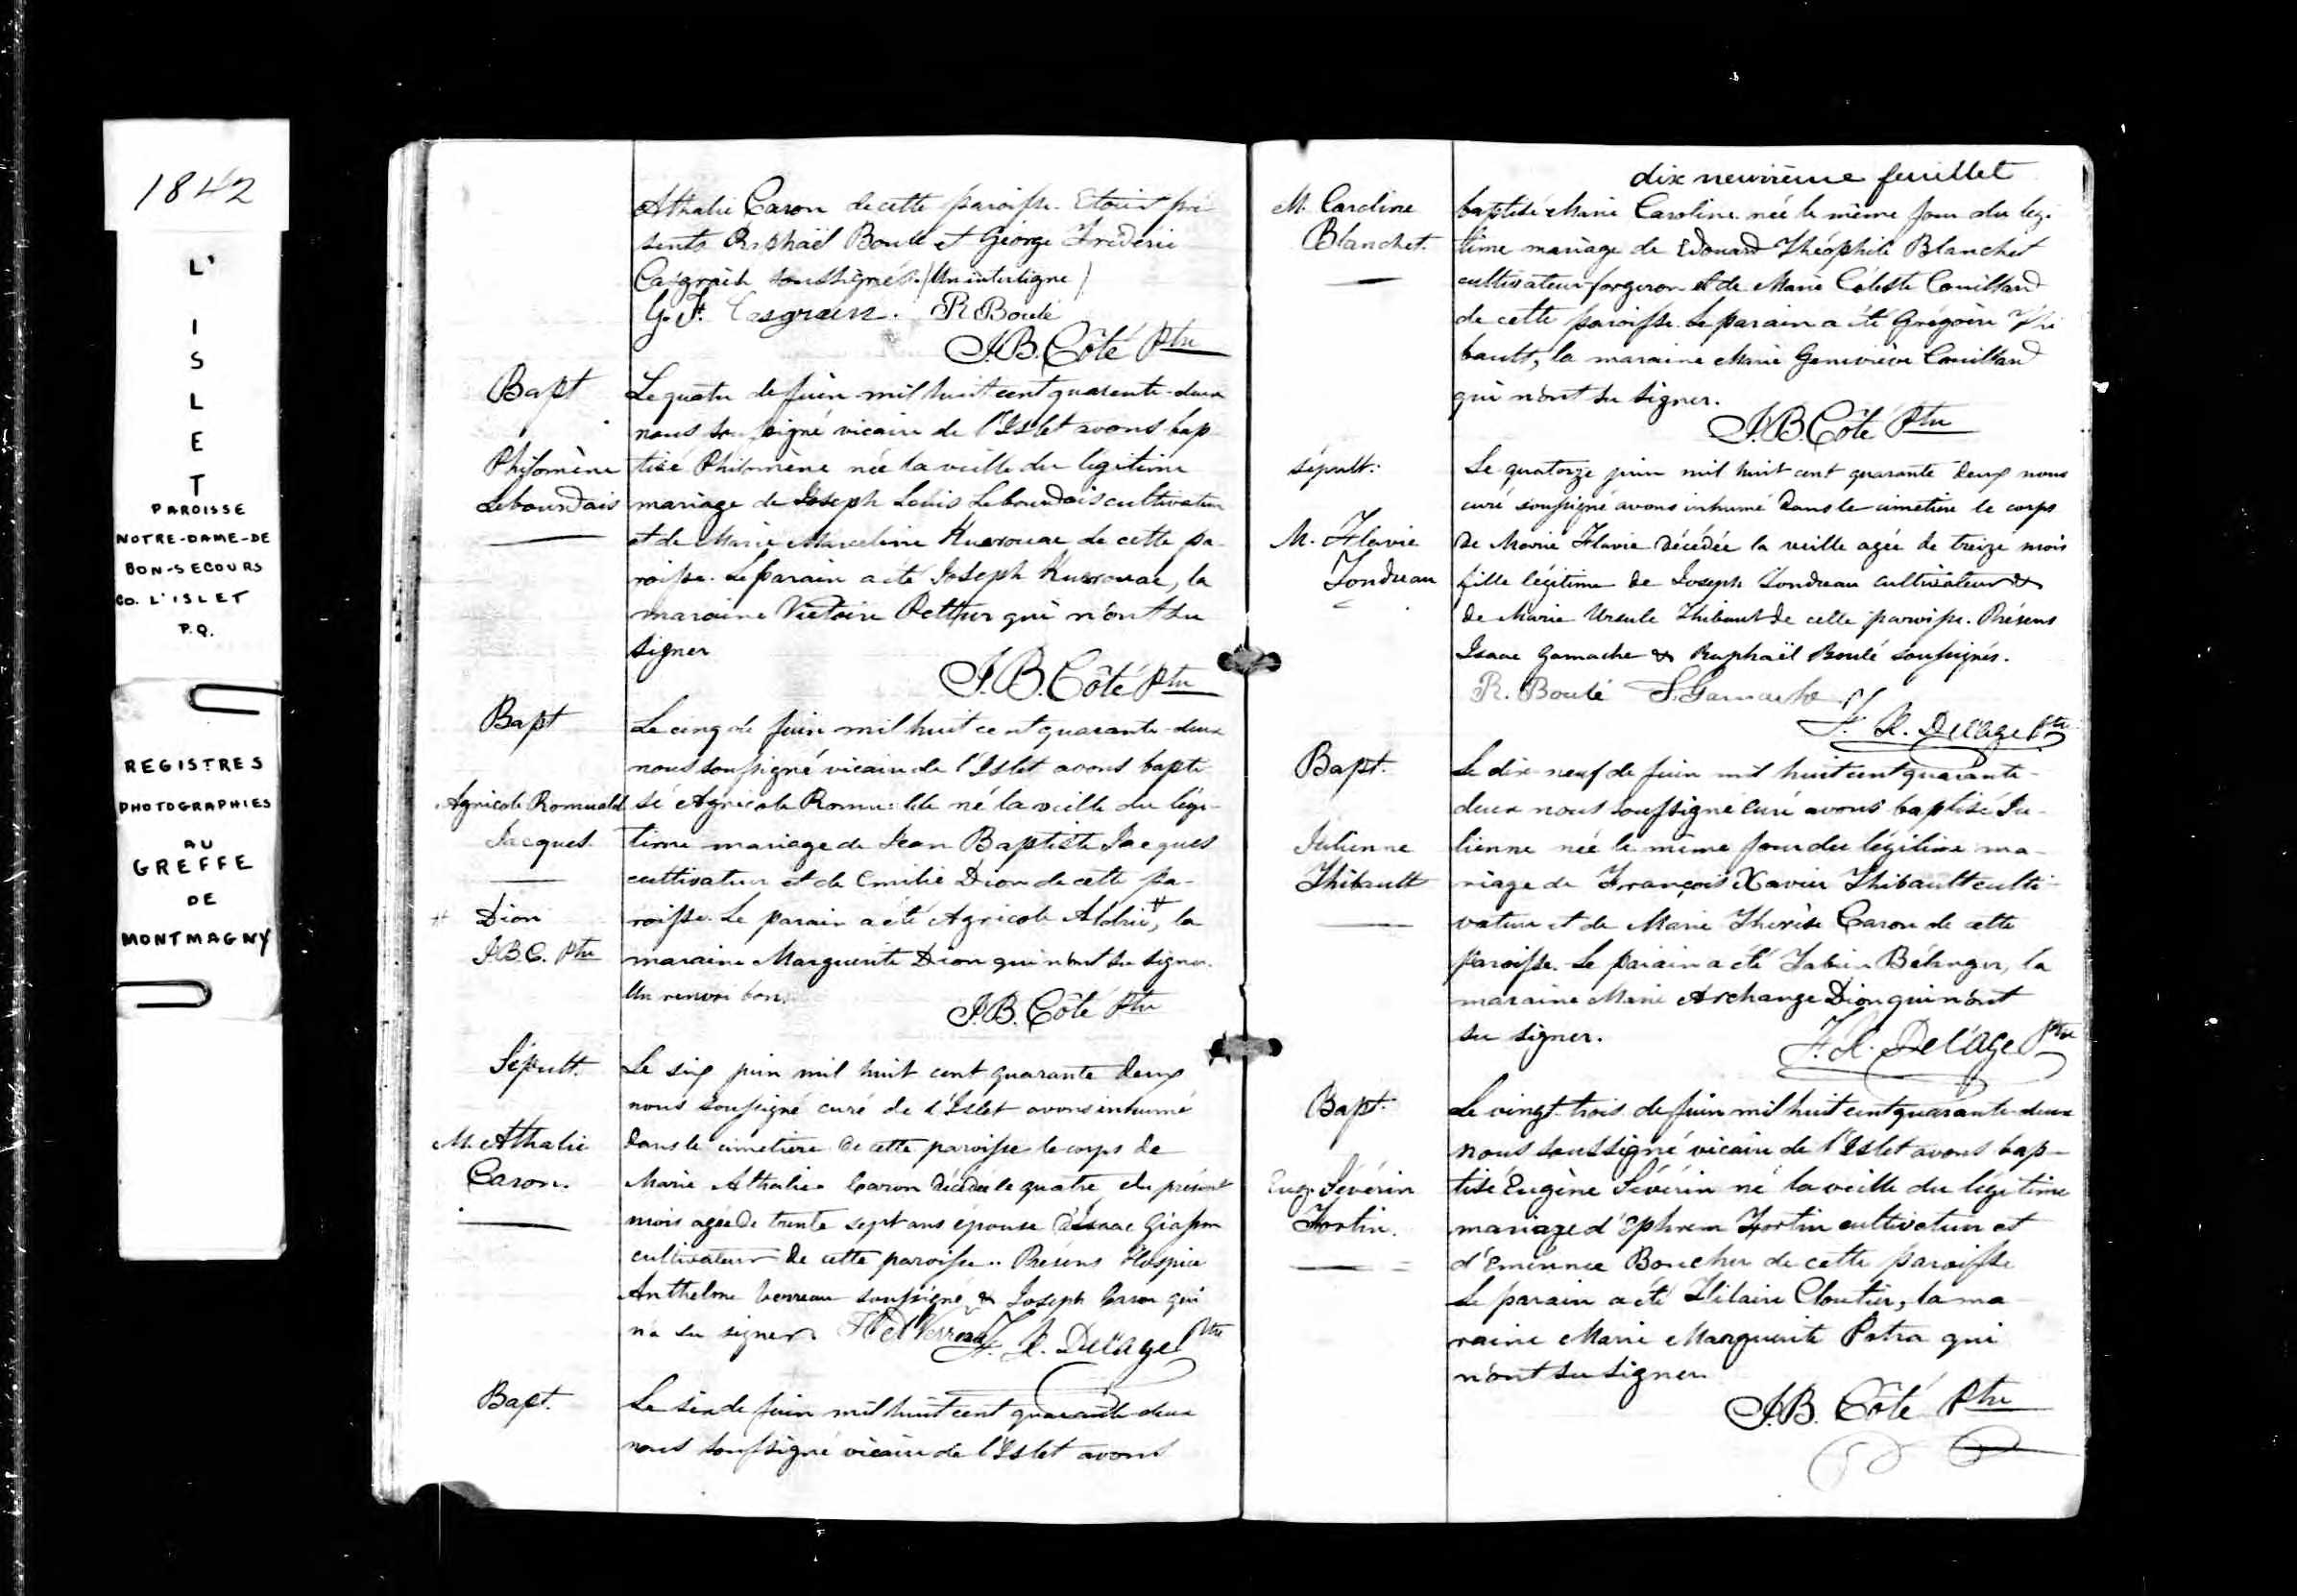 1842
L'
I
S
L
E
T
PAROISSE
NOTRE-DAME-DE
BON-SECOURS
CO. L'ISLET
P.Q.
REGISTRES
PHOTOGRAPHIES
AU
GREFFE
DE
MONTMAGNY
Athalie Caron de cette paroisse. Etoient pré
sents Raphaël Boulé et George Frédéric
Casgrain soussignés. / Un interligne /
G. F. Casgrain. R. Boulé
J.B. Côté Ptre
Bapt
Philomène
Lebourdais
Le quatre de juin mil huit cent quarante-deux
nous soussigné vicaire de l'Islet avons bap
tisé Philomène née la veille du légitime
mariage de Joseph Louis Lebourdais cultivateur
et de Marie Marceline Kuerouac de cette pa
roisse. Le parain a été Joseph Kuerouac, la
maraine Victoire Pelletier qui n'ont su
signer
J.B. Côté Ptre
Bapt
Agricole Romuald
Jacques
# Dion
J.B.C. Ptre
Le cinq de juin mil huit cent quarante-deux
nous soussigné vicaire de l'Islet avons bapti
sé Agricole Romualde né la veille du légi-
time mariage de Jean Baptiste Jacques
cultivateur et de Emilie Dion de cette pa-
roisse. Le parain a été Agricole Aldric #, la
maraine Marguerite Dion qui n'ont su signer.
Un renvoi bon.
J.B. Côté Ptre
Sépult.
M. Athalie
Caron.
Le six juin mil huit cent quarante deux
nous soussigné curé de l'Islet avons inhumé
dans le cimetière de cette paroisse le corps de
Marie Athalie Caron décédée le quatre du présent
mois agée de trente sept ans épouse d'Isaac Giasson
cultivateur de cette paroisse. Présens Hospice
Anthelme Verreau soussigné & Joseph Caron qui
n'a su signer. Verreau F. X. Delâge Ptre
Bapt.
Le six de juin mil huit cent quarante-deux
nous soussigné vicaire de l'Islet avons
dix neuvième feuillet
M. Caroline
Blanchet.
baptisé Marie Caroline née le même jour du légi-
time mariage de Edouard Théophile Blanchet
cultivateur-forgeron et de Marie Céleste Couillard
de cette paroisse. Le parain a été Grégoire Thi
bault, la maraine Marie Geneviève Couillard
qui n'ont su signer.
J.B. Côté Ptre
Sépult:
M. Flavie
Tondreau
Le quatorze juin mil huit cent quarante deux nous
curé soussigné avons inhumé dans le cimetière le corps
de Marie Flavie décédée la veille agée de treize mois
fille légitime de Joseph Tondreau cultivateur &
de Marie Ursule Thibault de cette paroisse. Présens
Isaac Gamache & Raphaël Boulé soussignés.
R. Boulé I. Gamache
F. X. Delâge Ptre
Bapt.
Julienne
Thibault
Le dix-neuf de juin mil huit cent quarante-
deux nous soussigné curé avons baptisé Ju-
lienne née le même jour du légitime ma-
riage de François Xavier Thibault culti-
vateur et de Marie Thérèse Caron de cette
paroisse. Le parain a été Fabien Bélanger, la
maraine Marie Archange Dion qui n'ont
su signer.
F. X. Delâge Ptre
Bapt.
Eug. Sévérin
Fortin.
Le vingt-trois de juin mil huit cent quarante-deux
nous soussigné vicaire de l'Islet avons bap-
tisé Eugène Sévérin né la veille du légitime
mariage d'Ephrem Fortin cultivateur et
d'Emérence Boucher de cette paroisse
Le parain a été Hilaire Cloutier, la ma
raine Marie Marguerite Potra qui
n'ont su signer
J.B. Côté Ptre